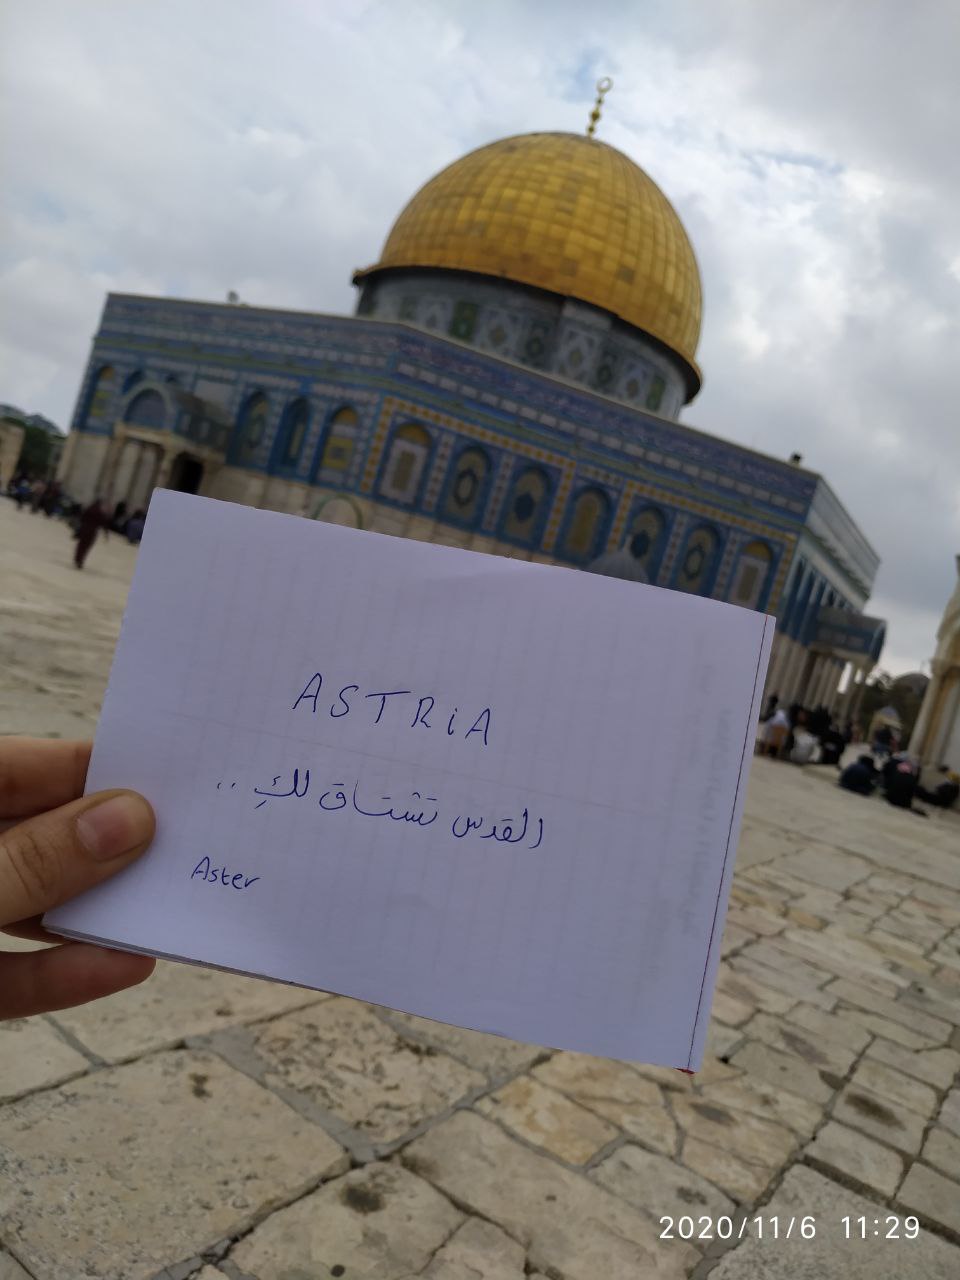 ASTRiA
القدس تشتاق لكِ ..
Aster
2020/11/6 11:29